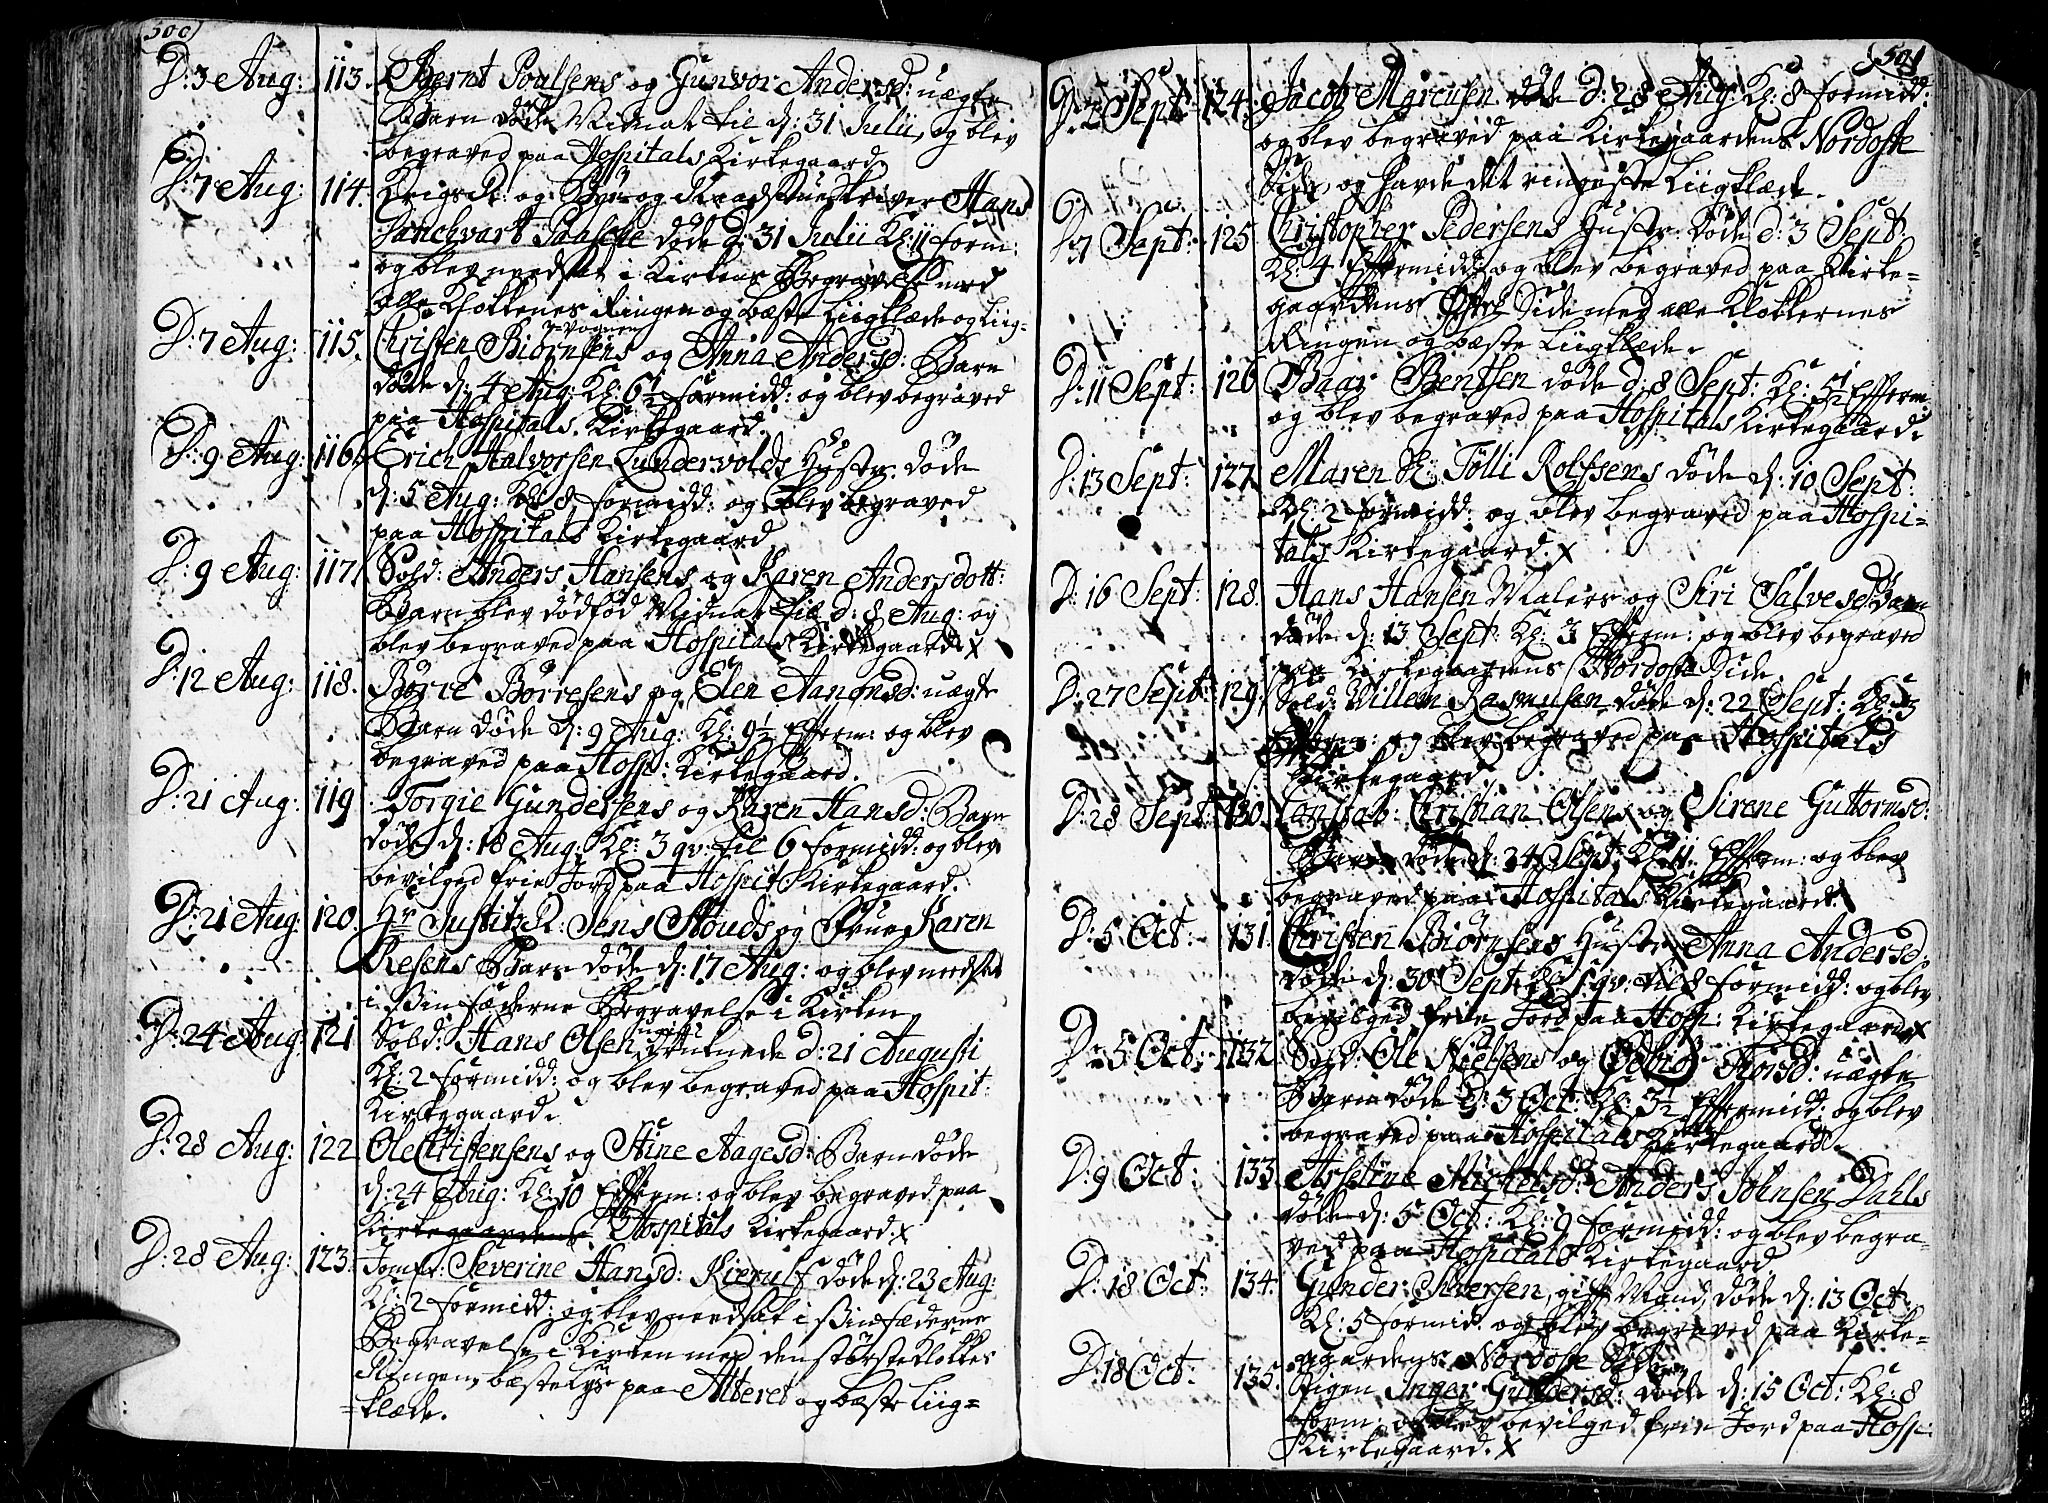 500
D: 3 Aug: 113. Bernt Poulsens og Gunvor Andersd: uægte
Barn døde Midnat til d: 31 Julii, og blev
begraved paa Hospitals Kirkegaard.
D: 7 Aug: 114. Krigs og By og Raadstueskriver Hans
Paasche døde d: 31 Julii Kl: 11 form:
og blev nedsat i Kirkens Begravelse med
alle Klokkenes Ringen og beste Liigklæde og Liig-
vognen
D: 7 Aug: 115. Christen Biørnsens og Anna Andersd: Barn
døde d: 4 Aug: Kl: 6½ formidd: og blev begraved
paa Hospitals Kirkegaard.
D: 9 Aug: 116. Erich Halvorsen Lundervolds Hustr: døde
d: 5 Aug: Kl: 8 formidd: og blev begraved
paa Hospitals Kirkegaard
D: 9 Aug: 117. Sold: Anders Hansens og Karen Andersdott:
Barn blev dødfød Midnat til d: 8 Aug: og
blev begraved paa Hospitals Kirkegaard. X
D: 12 Aug: 118. Børre Børresens og Elen Aanonsd: uægte
Barn døde d: 9 Aug: Kl: 9½ Efferm: og blev
begraved paa Hosp: Kirkegaard.
D: 21 Aug: 119 Torgie Gundersens og Karen Hansd: Barn
døde d: 18 Aug: Kl: 3 qv: til 6 formidd: og blev
bevilged frie Jord paa Hospit: Kirkegaard.
D: 21 Aug: 120. Hr Justitz R: Jens Stouds og Frue Karen
Resens Barn døde d: 17 Aug: og blev nedsat
i sin fæderne Begravelse i Kirken
D: 24 Aug: 121 Sold: Hans Olsen ugift druknede d: 21 Augusti
Kl: 2 formidd: og blev begraved paa Hospit:
Kirkegaard.
D: 28 Aug: 122 Ole Christensens og Stine Aagesd: Barn døde
d: 24 Aug: Kl: 10 Efferm: og blev begraved paa
Kirkegaardens Hospitals Kirkegaard. X
D: 28 Aug: 123. Jomfr: Severine Hansd: Kierulf døde d: 23 Aug:
Kl: 2 formidd: og blev nedsat i sin fæderne
Begravelse i Kirken med den største Klokkes
Ringen, beste Lys paa Alteret og beste Liig-
klæde.
501
D: 2 Sept: 124. Jacob Marcusen døde d: 28 Aug: Kl: 8 formidd:
og blev begraved paa Kirkegaardens Nordoste
Side, og havde det ringeste Liigklæde.
D: 7 Sept: 125. Christopher Pedersens Hustr: døde d: 3 Sept:
Kl: 4 Effermidd: og blev begraved paa Kirke-
gaardens Side med alle Klokkernes
Ringen og beste Liigklæde.
D: 11 Sept: 126 Baar Bentsen døde d: 8 Sept: Kl: 5½ Efferm:
og blev begraved paa Hospitals Kirkegaard.
D: 13 Sept: 127. Maren Tølli Rolfsens døde d: 10 Sept:
Kl: 2 formidd: og blev begraved paa Hospi-
tals Kirkegaard. X
D: 16 Sept: 128. Hans Hansen Malers og Siri Salvesd: Barn
døde d: 13 Sept: Kl: 3 Efferm: og blev begraved
paa Kirkegaardens Nordoste Side
D: 27 Sept: 129. Sold: Willem Rasmusen døde d: 22 Sept: Kl: 3
Efferm: og blev begraved paa Hospitals
Kirkegaard.
D: 28 Sept: 130. Constab: Christian Olsens og Sirene Guttormsd:
Barn døde d: 24 Sept: Kl: 11 Efferm: og blev
begraved paa Hospitals Kirkegaard.
D: 5 Oct: 131. Christen Biørnsens Hustr: Anna Andersd:
døde d: 30 Sept: Kl: 1 qv: til 8 formidd: og blev
bevilged frie Jord paa Hosp: Kirkegaard. X
D: 5 Oct: 132 Sold: Ole Nielsens og uægte
Barn døde d: 3 Oct: Kl: 3½ Effermidd: og blev
begraved paa Hospitals Kirkegaard.
D: 9 Oct: 133. Arseline Mickelsd: Anders Johnsen Dahls
døde d: 5 Oct: Kl: 9 formidd: og blev begra-
ved paa Hospitals Kirkegaard
D: 18 Oct: 134. Gunder Iversen, gift Mand, døde d: 13 Oct:
Kl: 5 formid: og blev begraved paa Kirke-
gaardens Nordoste Side
D: 18 Oct: 135. Pigen Inger Gundersd: døde d: 15 Oct: Kl: 8
form: og blev bevilged frie Jord paa Hosp:
Kirkegaard. X